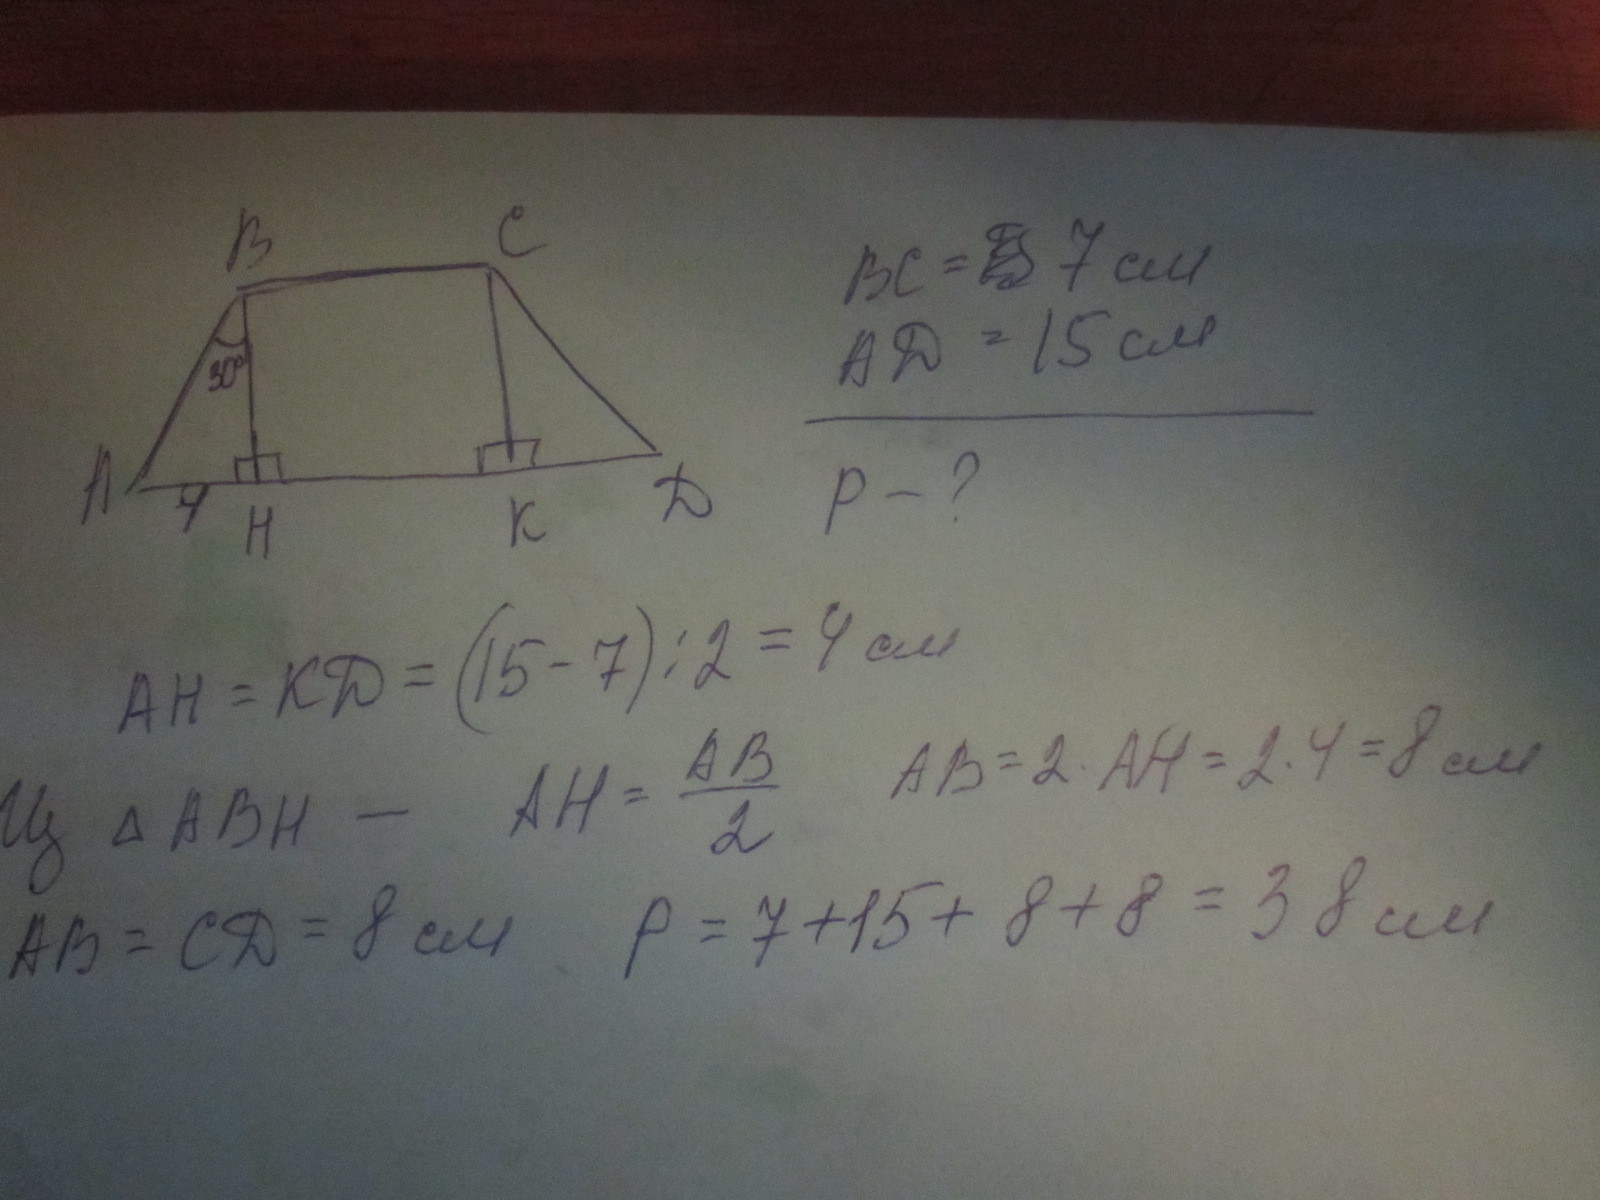 B C
BC = 7 см
30°
AD = 15 см
A 4 H K D
P - ?
AH = KD = (15 - 7) : 2 = 4 см
Из △ ABH — AH = AB/2 AB = 2 · AH = 2 · 4 = 8 см
AB = CD = 8 см P = 7 + 15 + 8 + 8 = 38 см